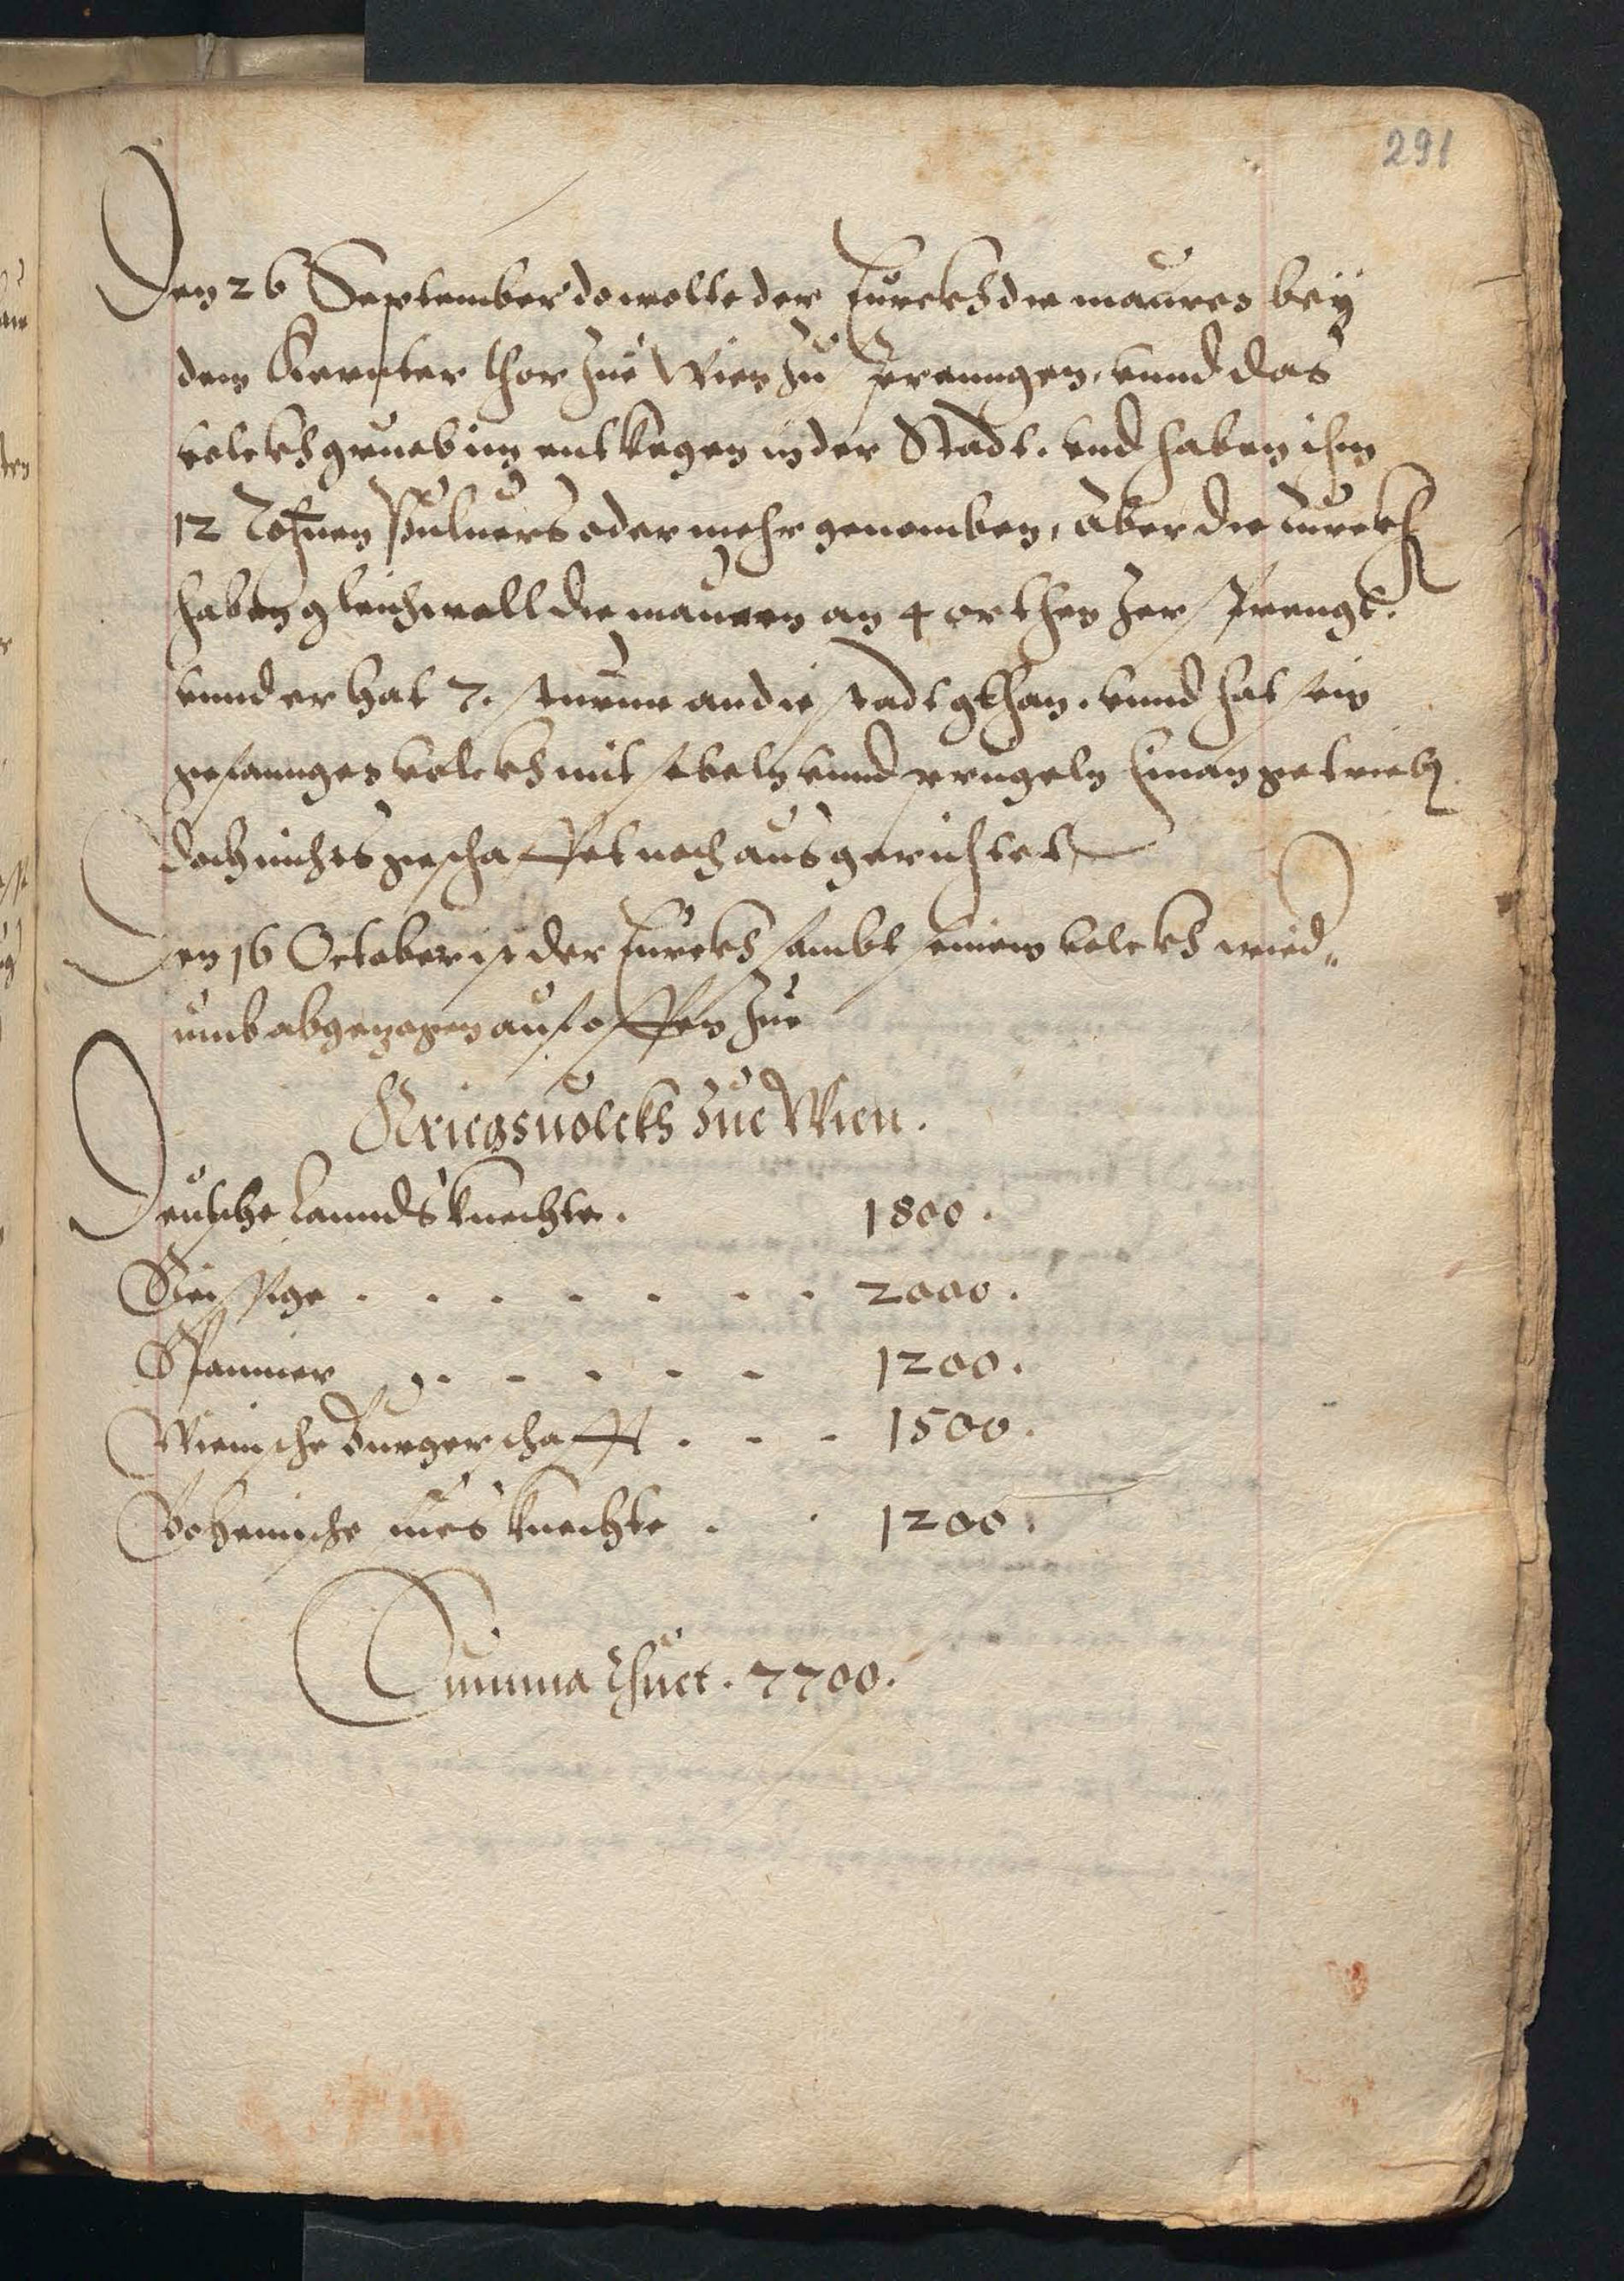 291
Den 26 September do wolte der Turckh die mauren beÿ
dem Kernter thor zue Wien zu sprenngen, vnnd das
volckh grueb im entkegen in der Stadt. vnd haben ihm
12 Tohnen Puluers oder mehr genomben, aber die Turckh
haben gleichwoll die mauren an 4 orthen zersprengt.
vnnd er hat 7. sturme an die stadt gthan. vnnd hat sein
gefannges volckh mit sebeln vnnd prugeln hinan getrieb
doch nichts geschaffet noch ausgerichtet
Den 16 October ist der Turckh sambt seinem volckh wied„
umb abgezogen auf ofen zue
Kriegsuolckh zue Wien.
Deutsche Lanndsknechte. 1800.
Reissige . . . . . . . 2000.
Spannier . . . . . . 1200.
Wienische Burgerschafft . . . 1500.
Bohemische fuesknechte . . 1200.
Summa thuet. 7700.